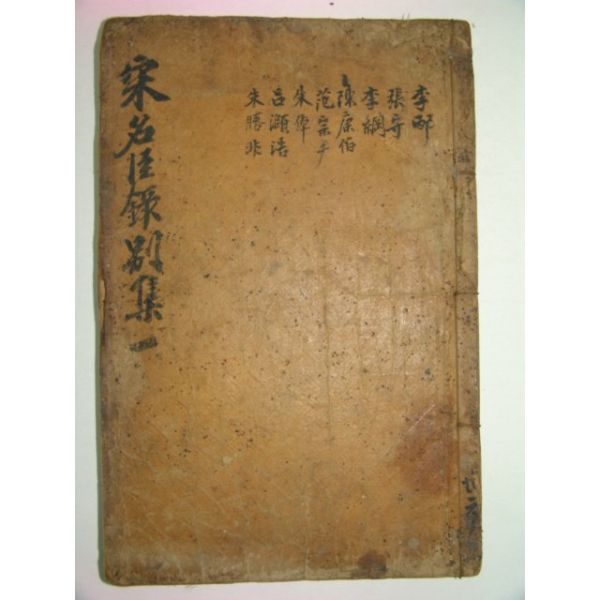 宋名臣錄別集一
李邴
張守
李綱
陳康伯
范宗尹
朱倬
呂頤浩
朱勝非